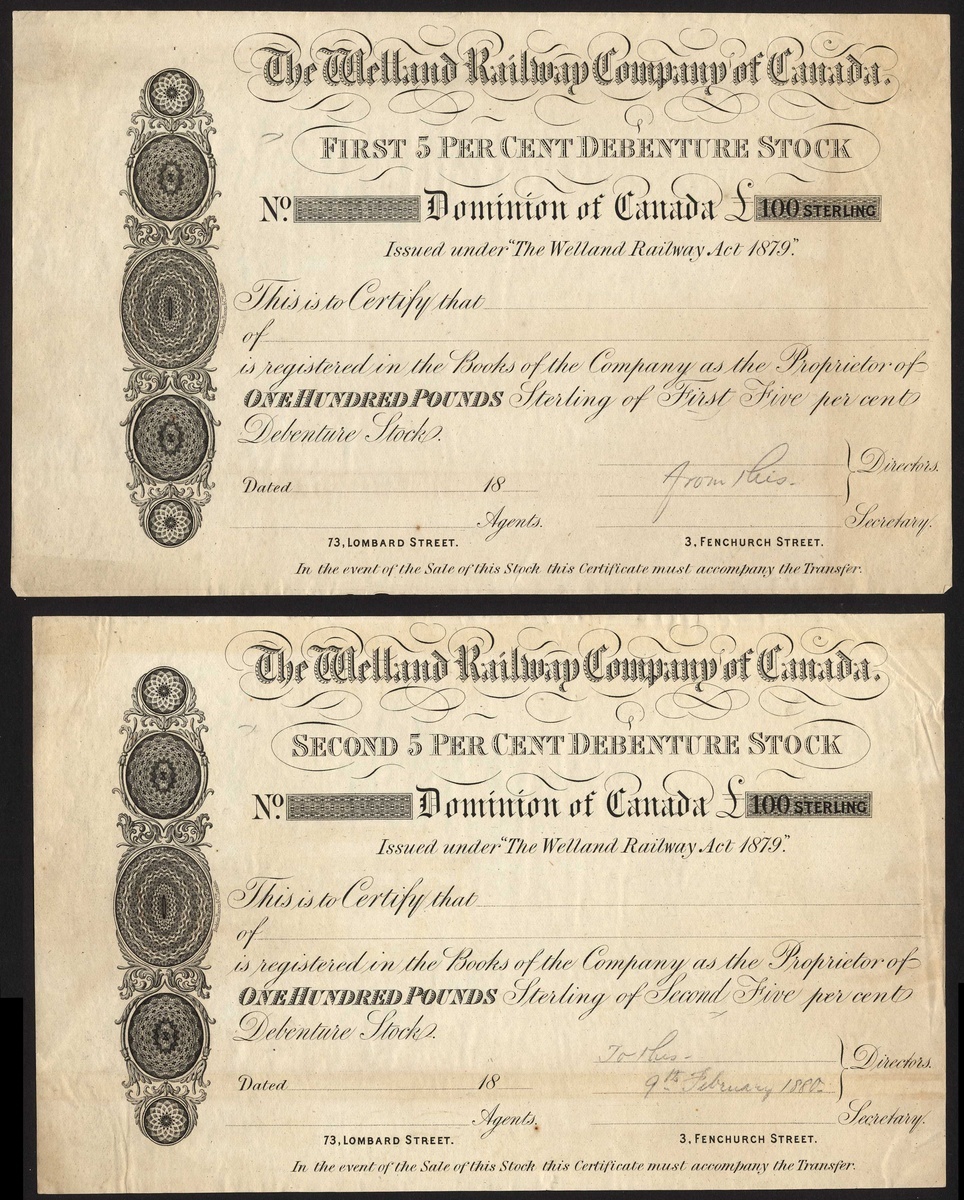 The Welland Railway Company of Canada.
FIRST 5 PER CENT DEBENTURE STOCK
No. Dominion of Canada £ 100 STERLING
Issued under "The Welland Railway Act 1879".
This is to Certify that
of
is registered in the Books of the Company as the Proprietor of
ONE HUNDRED POUNDS Sterling of First Five per cent
Debenture Stock.
Directors.
from this-
Dated 18
Agents. Secretary.
73, LOMBARD STREET. 3, FENCHURCH STREET.
In the event of the Sale of this Stock this Certificate must accompany the Transfer.
The Welland Railway Company of Canada.
SECOND 5 PER CENT DEBENTURE STOCK
No. Dominion of Canada £ 100 STERLING
Issued under "The Welland Railway Act 1879".
This is to Certify that
of
is registered in the Books of the Company as the Proprietor of
ONE HUNDRED POUNDS Sterling of Second Five per cent
Debenture Stock.
To this-
Directors.
Dated 18 9th February 1880-
Agents. Secretary.
73, LOMBARD STREET. 3, FENCHURCH STREET.
In the event of the Sale of this Stock this Certificate must accompany the Transfer.